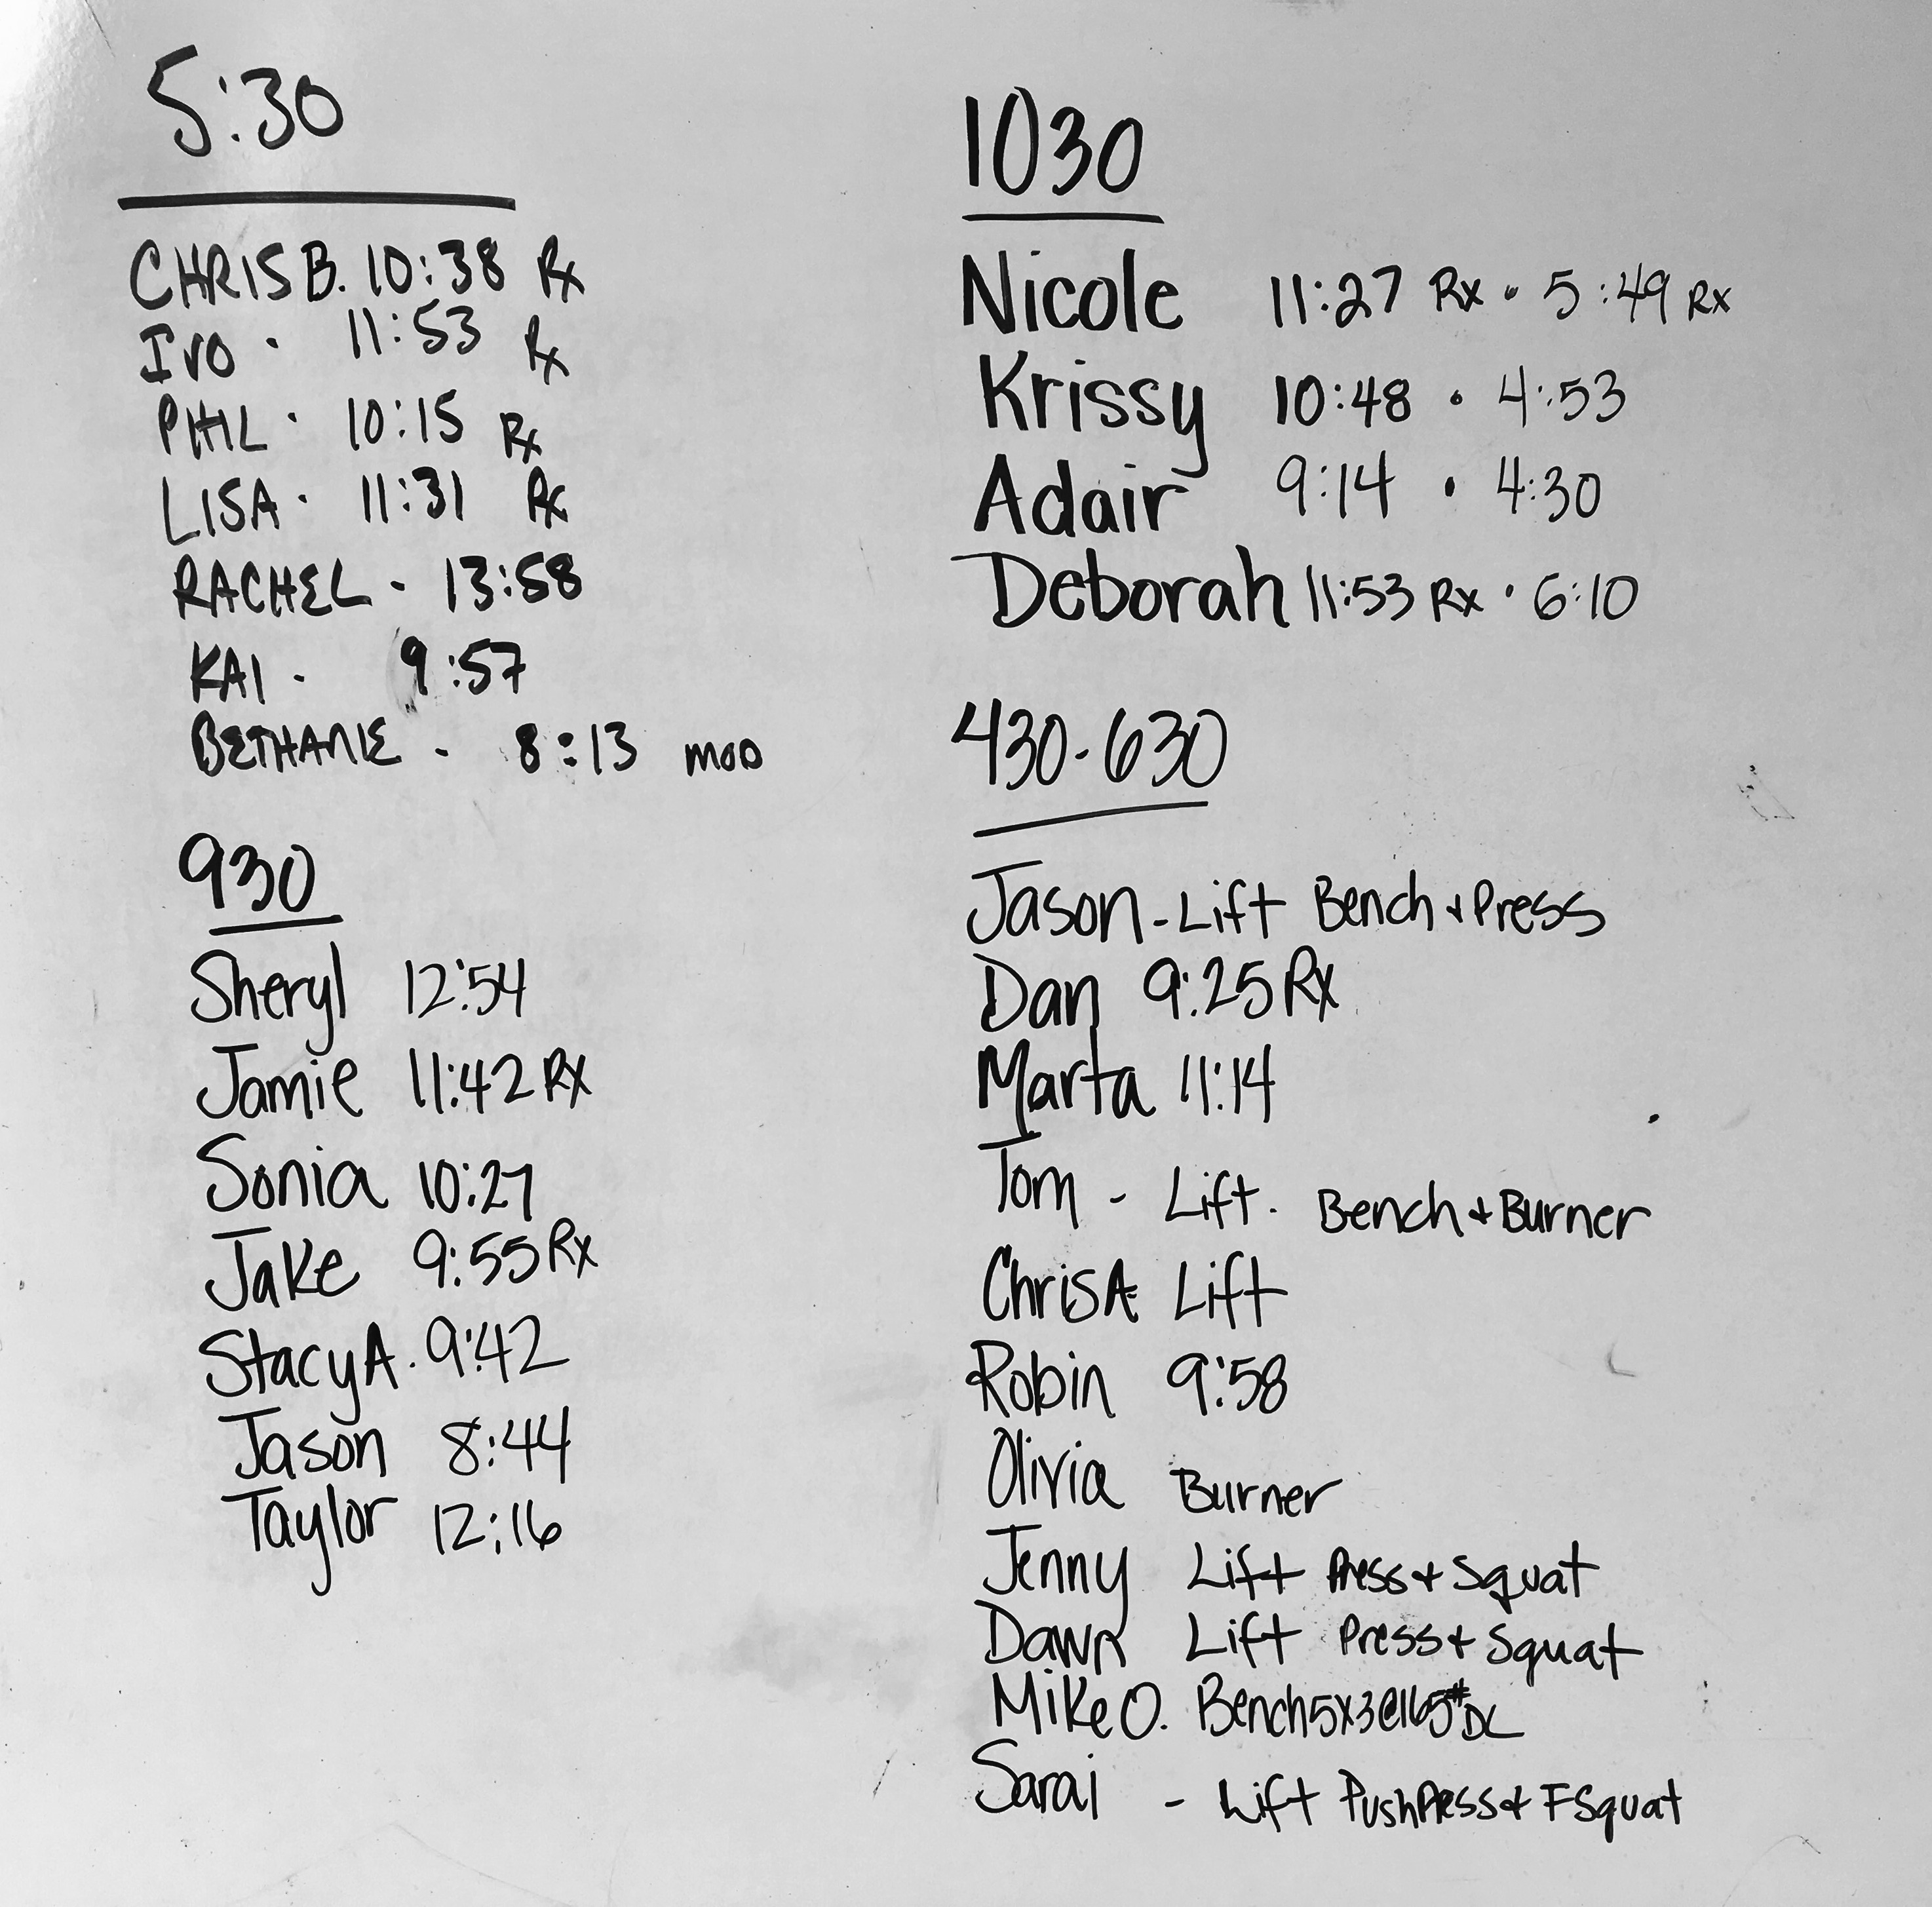 5:30
CHRIS B. 10:38 Rx
IVO · 11:53 Rx
PHIL · 10:15 Rx
LISA · 11:31 Rx
RACHEL - 13:58
KAI - 9:57
BETHANIE - 8:13 MOD
930
Sheryl 12:54
Jamie 11:42 Rx
Sonia 10:27
Jake 9:55 Rx
Stacy A. 9:42
Jason 8:44
Taylor 12:16
1030
Nicole 11:27 Rx · 5:49 Rx
Krissy 10:48 · 4:53
Adair 9:14 · 4:30
Deborah 11:53 Rx · 6:10
430-630
Jason - Lift Bench + Press
Dan 9:25 Rx
Marta 11:14
Tom - Lift. Bench + Burner
Chris A Lift
Robin 9:58
Olivia Burner
Jenny Lift Press + Squat
Dawn Lift Press + Squat
Mike O. Bench 5x3@165# DL
Sarai - Lift Push Press + F Squat